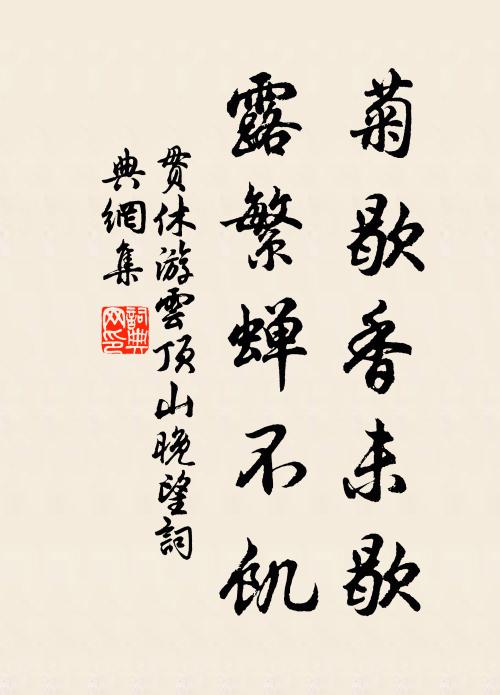 菊歇香未歇
露繁蝉不飢
贯休游雲頂山晚望詞
典網集
詞典
网印